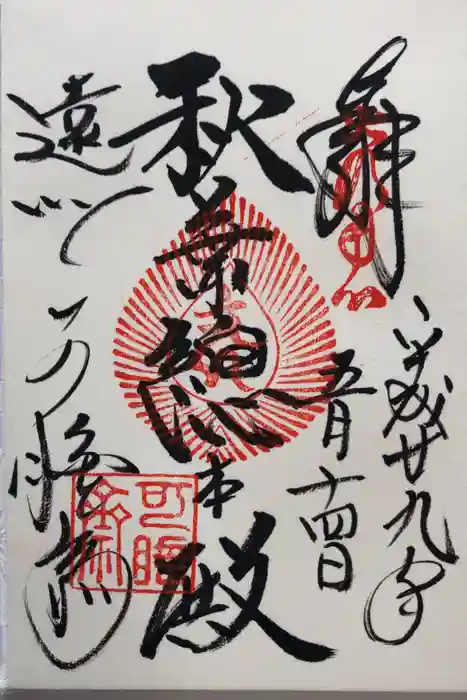 平成廿九年
五月十四日
秋葉總本殿
遠州
可睡齋